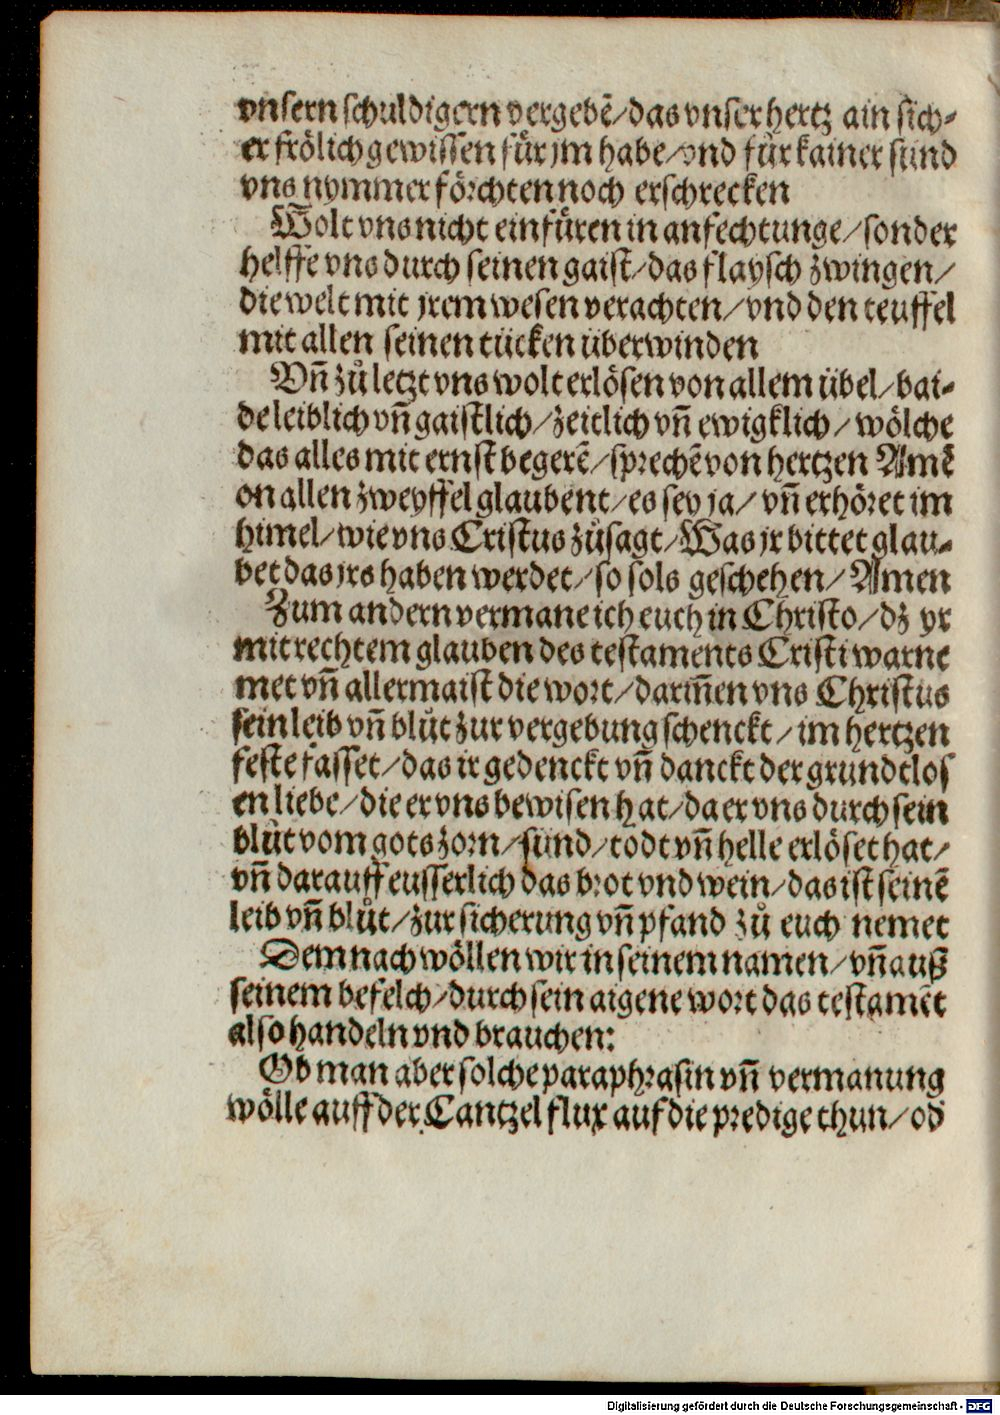 vnsern schuldigern vergebē/das vnser hertz ain sich⸗
er frölich gewissen für jm habe/vnd für kainer sünd
vns nymmer förchten noch erschrecken
Wolt vns nicht einfüren in anfechtunge/sonder
helffe vns durch seinen gaist/das flaysch zwingen/
die welt mit jrem wesen verachten/vnd den teuffel
mit allen seinen tücken überwinden
Vñ zůletzt vns wolt erlösen von allem übel/bai⸗
de leiblich vñ gaistlich/zeitlich vñ ewigklich/wölche
das alles mit ernst begerē/sprechē von hertzen Amē
on allen zweyffel glaubent/es sey ja/vñ erhöret im
himel/wie vns Cristus zůsagt/Was jr bittet glau⸗
bet das jrs haben werdet/so sols geschehen/Amen
Zum andern vermane ich euch in Christo/dz yr
mit rechtem glauben des testaments Cristi warne
met vñ allermaist die wort/dariñen vns Christus
sein leib vñ blůt zur vergebung schenckt/im hertzen
feste fasset/das ir gedenckt vñ danckt der grundtlos
en liebe/die er vns bewisen hat/da er vns durch sein
blůt vom gots zorn/sünd/todt vñ helle erlöset hat/
vñ darauff eusserlich das brot vnd wein/das ist seinē
leib vñ blůt/zur sicherung vñ pfand zů euch nemet
Demnach wöllen wir in seinem namen/vñ auß
seinem befelch/durch sein aigene wort das testamēt
also handeln vnd brauchen:
Ob man aber solche paraphrasin vñ vermanung
wölle auff der Cantzel flux auf die predige thun/od
Digitalisierung gefördert durch die Deutsche Forschungsgemeinschaft - DFG